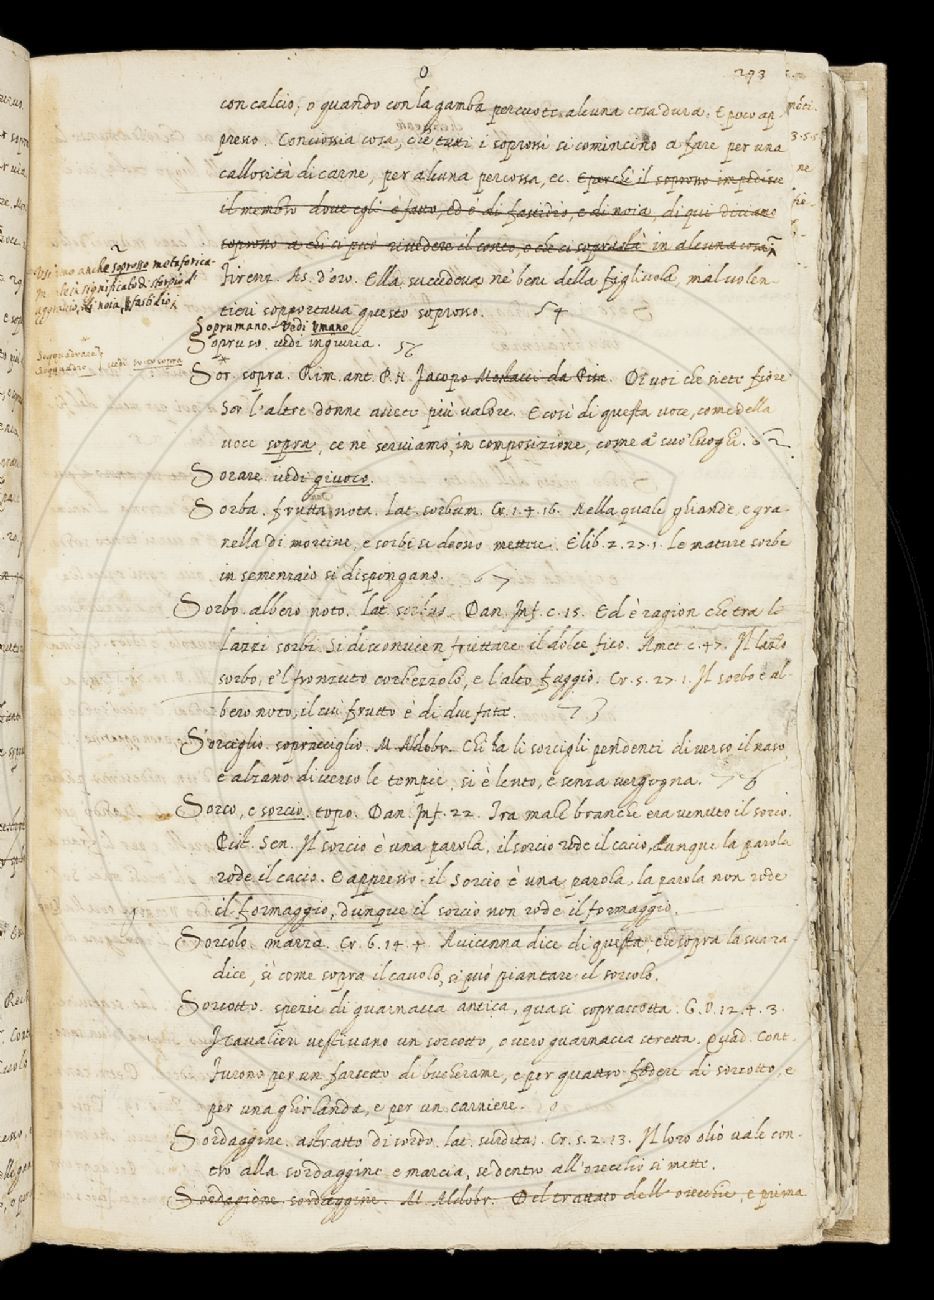 O 293
con calcio, o quando con la gamba percuote alcuna cosa dura. E poco ap-
presso. Conciossia cosa, che tutti i soprossi si comincino a fare per una
callosità di carne, per alcuna percossa, ec. E perchè il soprosso impedisce
il membro dove egli è fatto, ed è di fastidio, e di noia, di qui diciamo
soprosso a chi ci può rivedere il conto, o che ci soprastà in alcuna cosa.
anche soprosso metaforica-
significato di
noia, fastidio
Firenz. As. d'oro. Ella succedeva ne' beni della figliuola, mal volen-
tieri sopportava questo soprosso. 54
Soprumano. Vedi umano
Sopruso. vedi ingiuria. 56
Soqquadrare,
soqquadro. vedi sottosopra
Sor. sopra. Rim. ant. P. N. Jacopo Mostacci da Pisa. Di voi che siete fiore
Sor l'altre donne avete più valore. E così di questa voce, come della
voce sopra, ce ne serviamo, in composizione, come a' suo' luoghi. 62
Sorare. vedi giuoco.
Sorba. frutta nota. Lat. sorbum. Cr. 1. 4. 16. Nella quale ghiande, e gra-
nella di mortine, e sorbi si deono mettere. E lib. 2. 27. 1. Le mature sorbe
in semenzaio si dispongano. 67
Sorbo. albero noto. Lat. sorbus. Dan. Inf. c. 15. Ed è ragion che tra li
lazzi sorbi. Si disconvien fruttare il dolce fico. Amet. c. 47. Il lazzo
sorbo, e 'l fronzuto corbezzolo, e l'alto faggio. Cr. 5. 27. 1. Il sorbo è al-
bero noto, il cui frutto è di due fatte. 73
Sorciglio. sopracciglio. M. Aldobr. Chi ha li sorcigli pendenti diverso il naso
e alzano diverso le tempie, si è lento, e senza vergogna. 76
Sorco, e sorcio. topo. Dan. Inf. 22. Tra male branche era venuto il sorco.
Pist. Sen. Il sorcio è una parola, il sorcio rode il cacio, dunque la parola
rode il cacio. E appresso. il sorcio è una parola, la parola non rode
il formaggio, dunque il sorcio non rode il formaggio.
Sorcolo. marza. Cr. 6. 14. 4. Avicenna dice di questa che sopra la sua ra-
dice, sì come sopra il cavolo, si può piantare il sorcolo.
Sorcotto. spezie di guarnacca antica, quasi sopraccotta. G. V. 12. 4. 3.
I cavalieri vestivano un sorcotto, o vero guarnacca stretta. Quad. Cont.
Furono per un farsetto di bucherame, e per quattro fodere di sorcotto, e
per una ghirlanda, e per un carniere.
Sordaggine. astratto di sordo. Lat. surditas. Cr. 5. 2. 13. Il loro olio vale con-
tro alla sordaggine e marcia, se dentro all'orecchio si mette.
Sordagione. sordaggine. M. Aldobr. Del trattato dell'orecchie, e prima